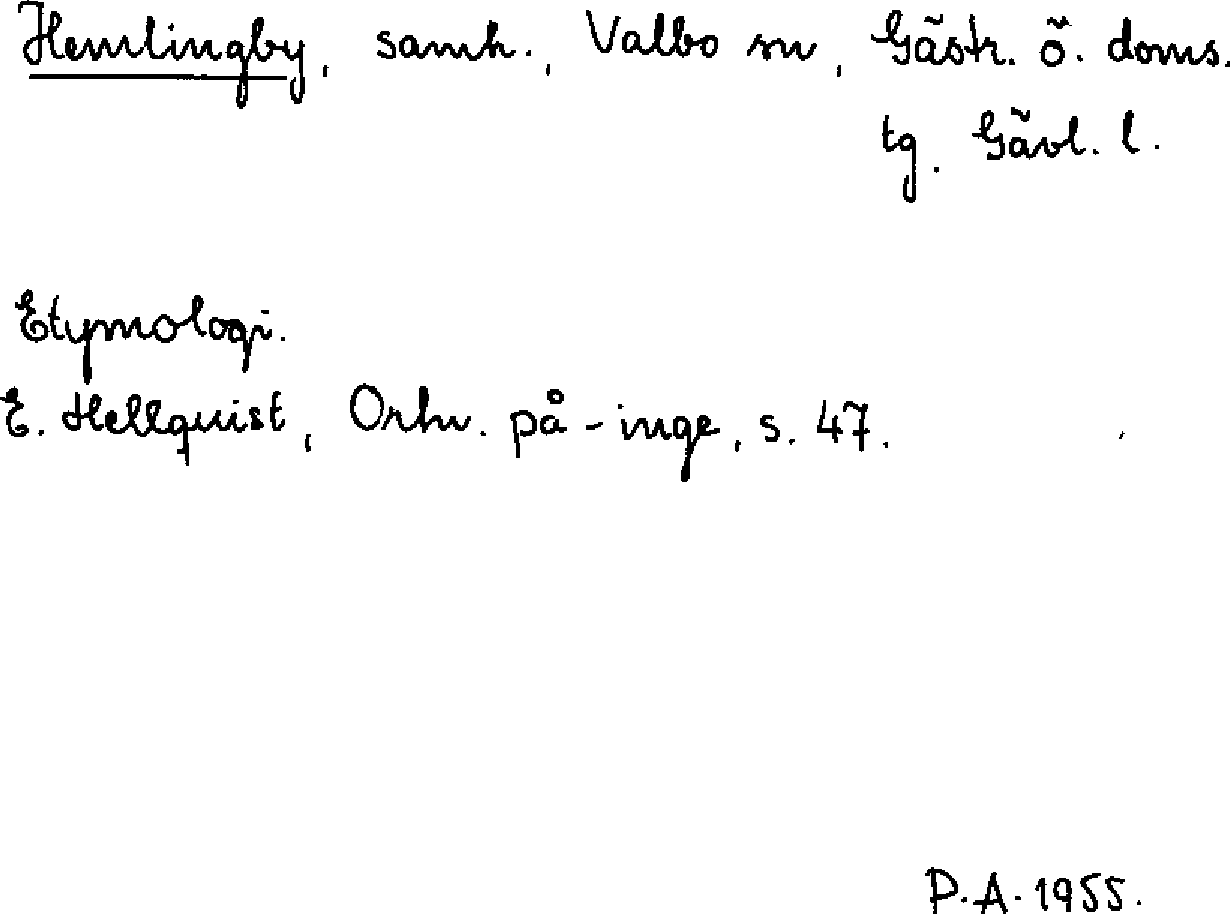 Hemlingby, samh., Valbo sn, Gästr. ö. doms.
tg. Gävl. l.
Etymologi.
E. Hellquist, Ortn. på -inge, s. 47.
P.A. 1955.